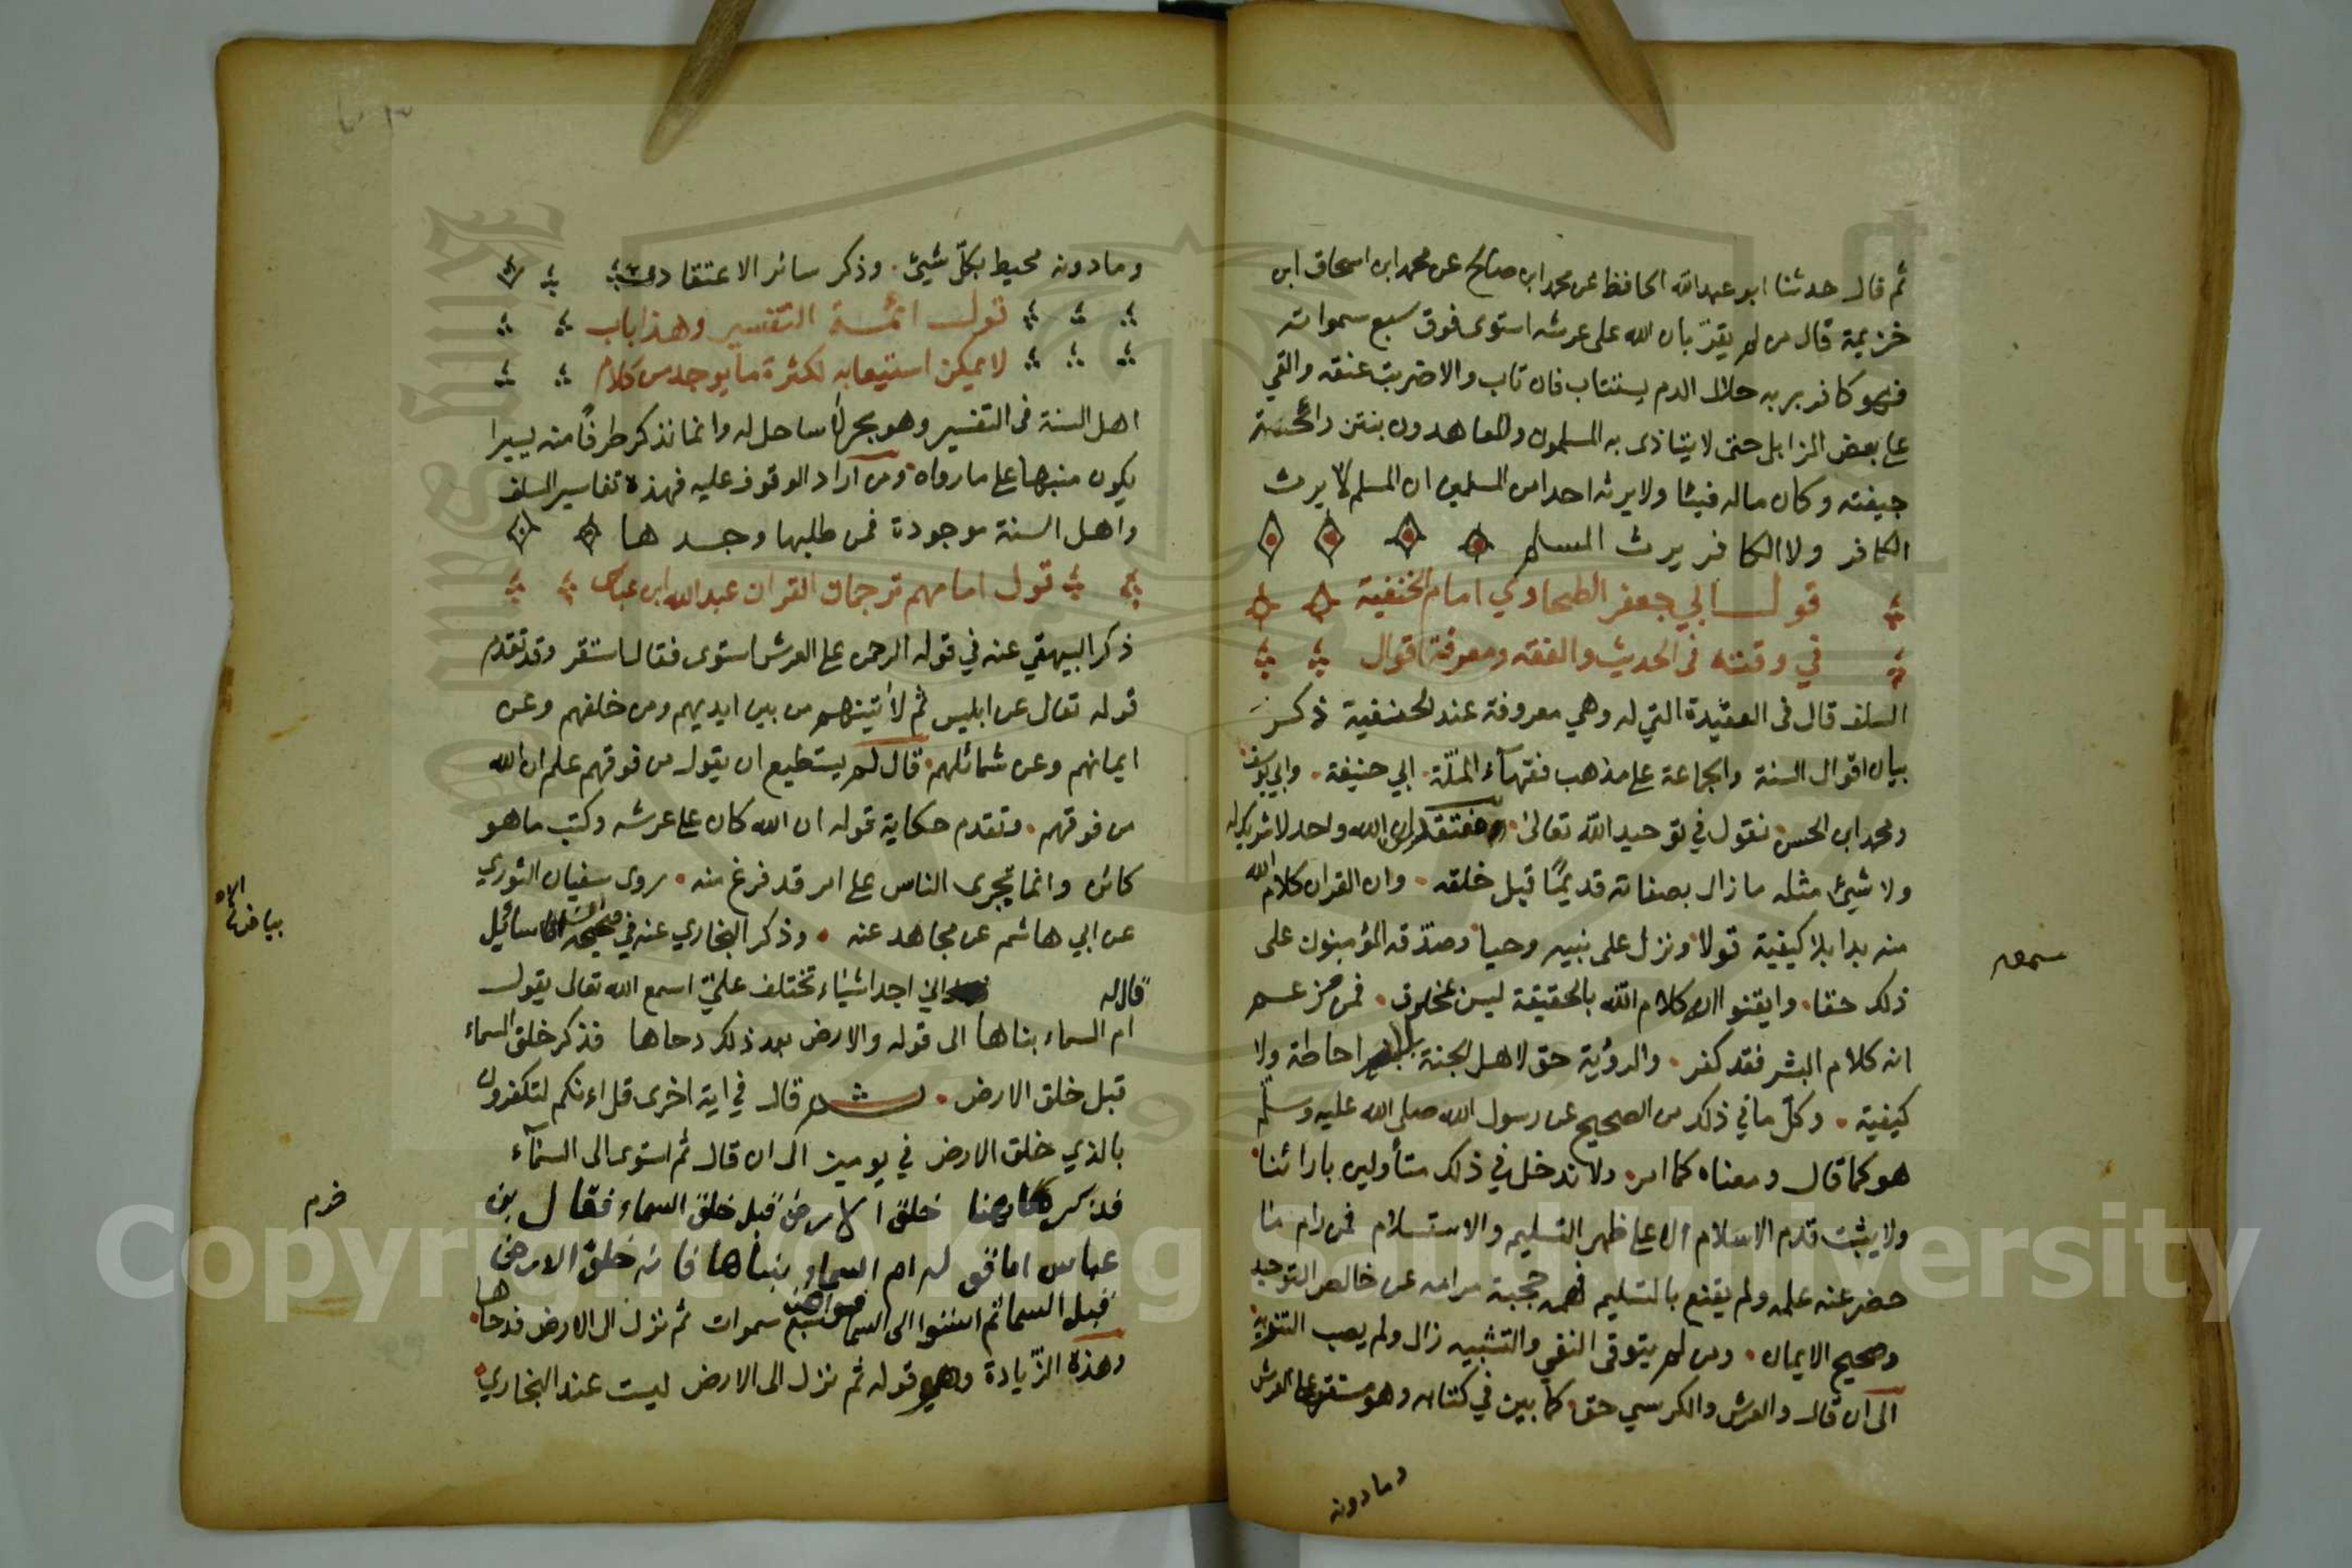 ثم قال حدثنا ابو عبدالله الحافظ عن محمد ابن صالح عن محمد ابن اسحاق ابن
خزيمة قال من لم يقرّ بان الله على عرشه استوى فوق سبع سمواته
فهو كافر بربه حلال الدم يستتاب فان تاب والا ضربت عنقه والقي
على بعض المزابل حتى لا يتاذى به المسلمون والمعاهدون بنتن رائحة
جيفته وكان ماله فيئا ولا يرثه احد من المسلمين ان المسلم لا يرث
الكافر ولا الكافر يرث المسلم
قول ابي جعفر الطحاوي امام الحنفية
في وقته فى الحديث والفقه ومعرفة اقوال
السلف قال فى العقيدة التي له وهي معروفة عند الحنفية ذكر
بيان اقوال السنة والجماعة على مذهب فقهآء الملّة ابي حنيفة وابي يوسف
ومحمد ابن الحسن نقول في توحيد الله تعالى ان الله واحد لا شريك له
ولا شيئ مثله ما زال بصفاته قديمًا قبل خلقه وان القران كلام الله
منه بدا بلا كيفية قولا ونزل على نبيه وحيا وصدّقه المؤمنون على
ذلك حقا وايقنوا انه كلام الله بالحقيقة ليس بمخلوق فمن زعم
سمعه
انه كلام البشر فقد كفر والرؤية حق لاهل الجنة بلا احاطة ولا
كيفية وكلّ ما في ذلك من الصحيح عن رسول الله صلى الله عليه وسلّم
هو كما قال ومعناه كما اراد ولا ندخل في ذلك متأولين بارائنا
ولا يثبت قدم الاسلام الا على ظهر التسليم والاستسلام فمن رام ما
حضر عنه علمه ولم يقنع بالتسليم فهمه حجبه مرامه عن خالص التوحيد
وصحيح الايمان ومن لم يتوقى النفي والتشبيه زال ولم يصب التنزيه
الى ان قال والعرش والكرسي حق كما بين في كتابه وهو مستغن عن العرش
وما دونه
وما دونه محيط بكلّ شيئ وذكر سائر الاعتقاد
قول ائمة التفسير وهذا باب
لا يمكن استيعابه لكثرة ما يوجد من كلام
اهل السنة فى التفسير وهو بحر لا ساحل له وانما نذكر طرفًا منه يسيرا
يكون منبها على ما رواه ومن اراد الوقوف عليه فهذه تفاسير السلف
واهل السنة موجودة فمن طلبها وجدها
قول امامهم ترجمان القران عبدالله ابن عباس
ذكر البيهقي عنه في قوله الرحمن على العرش استوى فقال استقر وقد تقدم
قوله تعالى عن ابليس ثم لاتينهم من بين ايديهم ومن خلفهم وعن
ايمانهم وعن شمائلهم قال لم يستطيع ان يقول من فوقهم علم ان الله
من فوقهم وتقدم حكاية قوله ان الله كان على عرشه وكتب ما هو
كائن وانما تجرى الناس على امر قد فرغ منه روى سفيان الثوري
عن ابي هاشم عن مجاهد عنه وذكر البخاري عنه في صحيحه ان سائيل
بياض
قال له اني اجد اشياء تختلف عليّ اسمع الله تعالى يقول
ام السماء بناها الى قوله والارض بعد ذلك دحاها فذكر خلق السماء
قبل خلق الارض ثم قال في اية اخرى قل اءنكم لتكفرون
بالذي خلق الارض في يومين الى ان قال ثم استوى الى السمآء
فذكر هاهنا خلق الارض قبل خلق السماء فقال بن
خرم
عباس اما قوله ام السماء بناها فانه خلق الارض
قبل السماء ثم استوا الى السما فسواهن سبع سموات ثم نزل الى الارض فدحاها
وهذه الزّيادة وهي قوله ثم نزل الى الارض ليست عند البخاري
Copyright © King Saud University